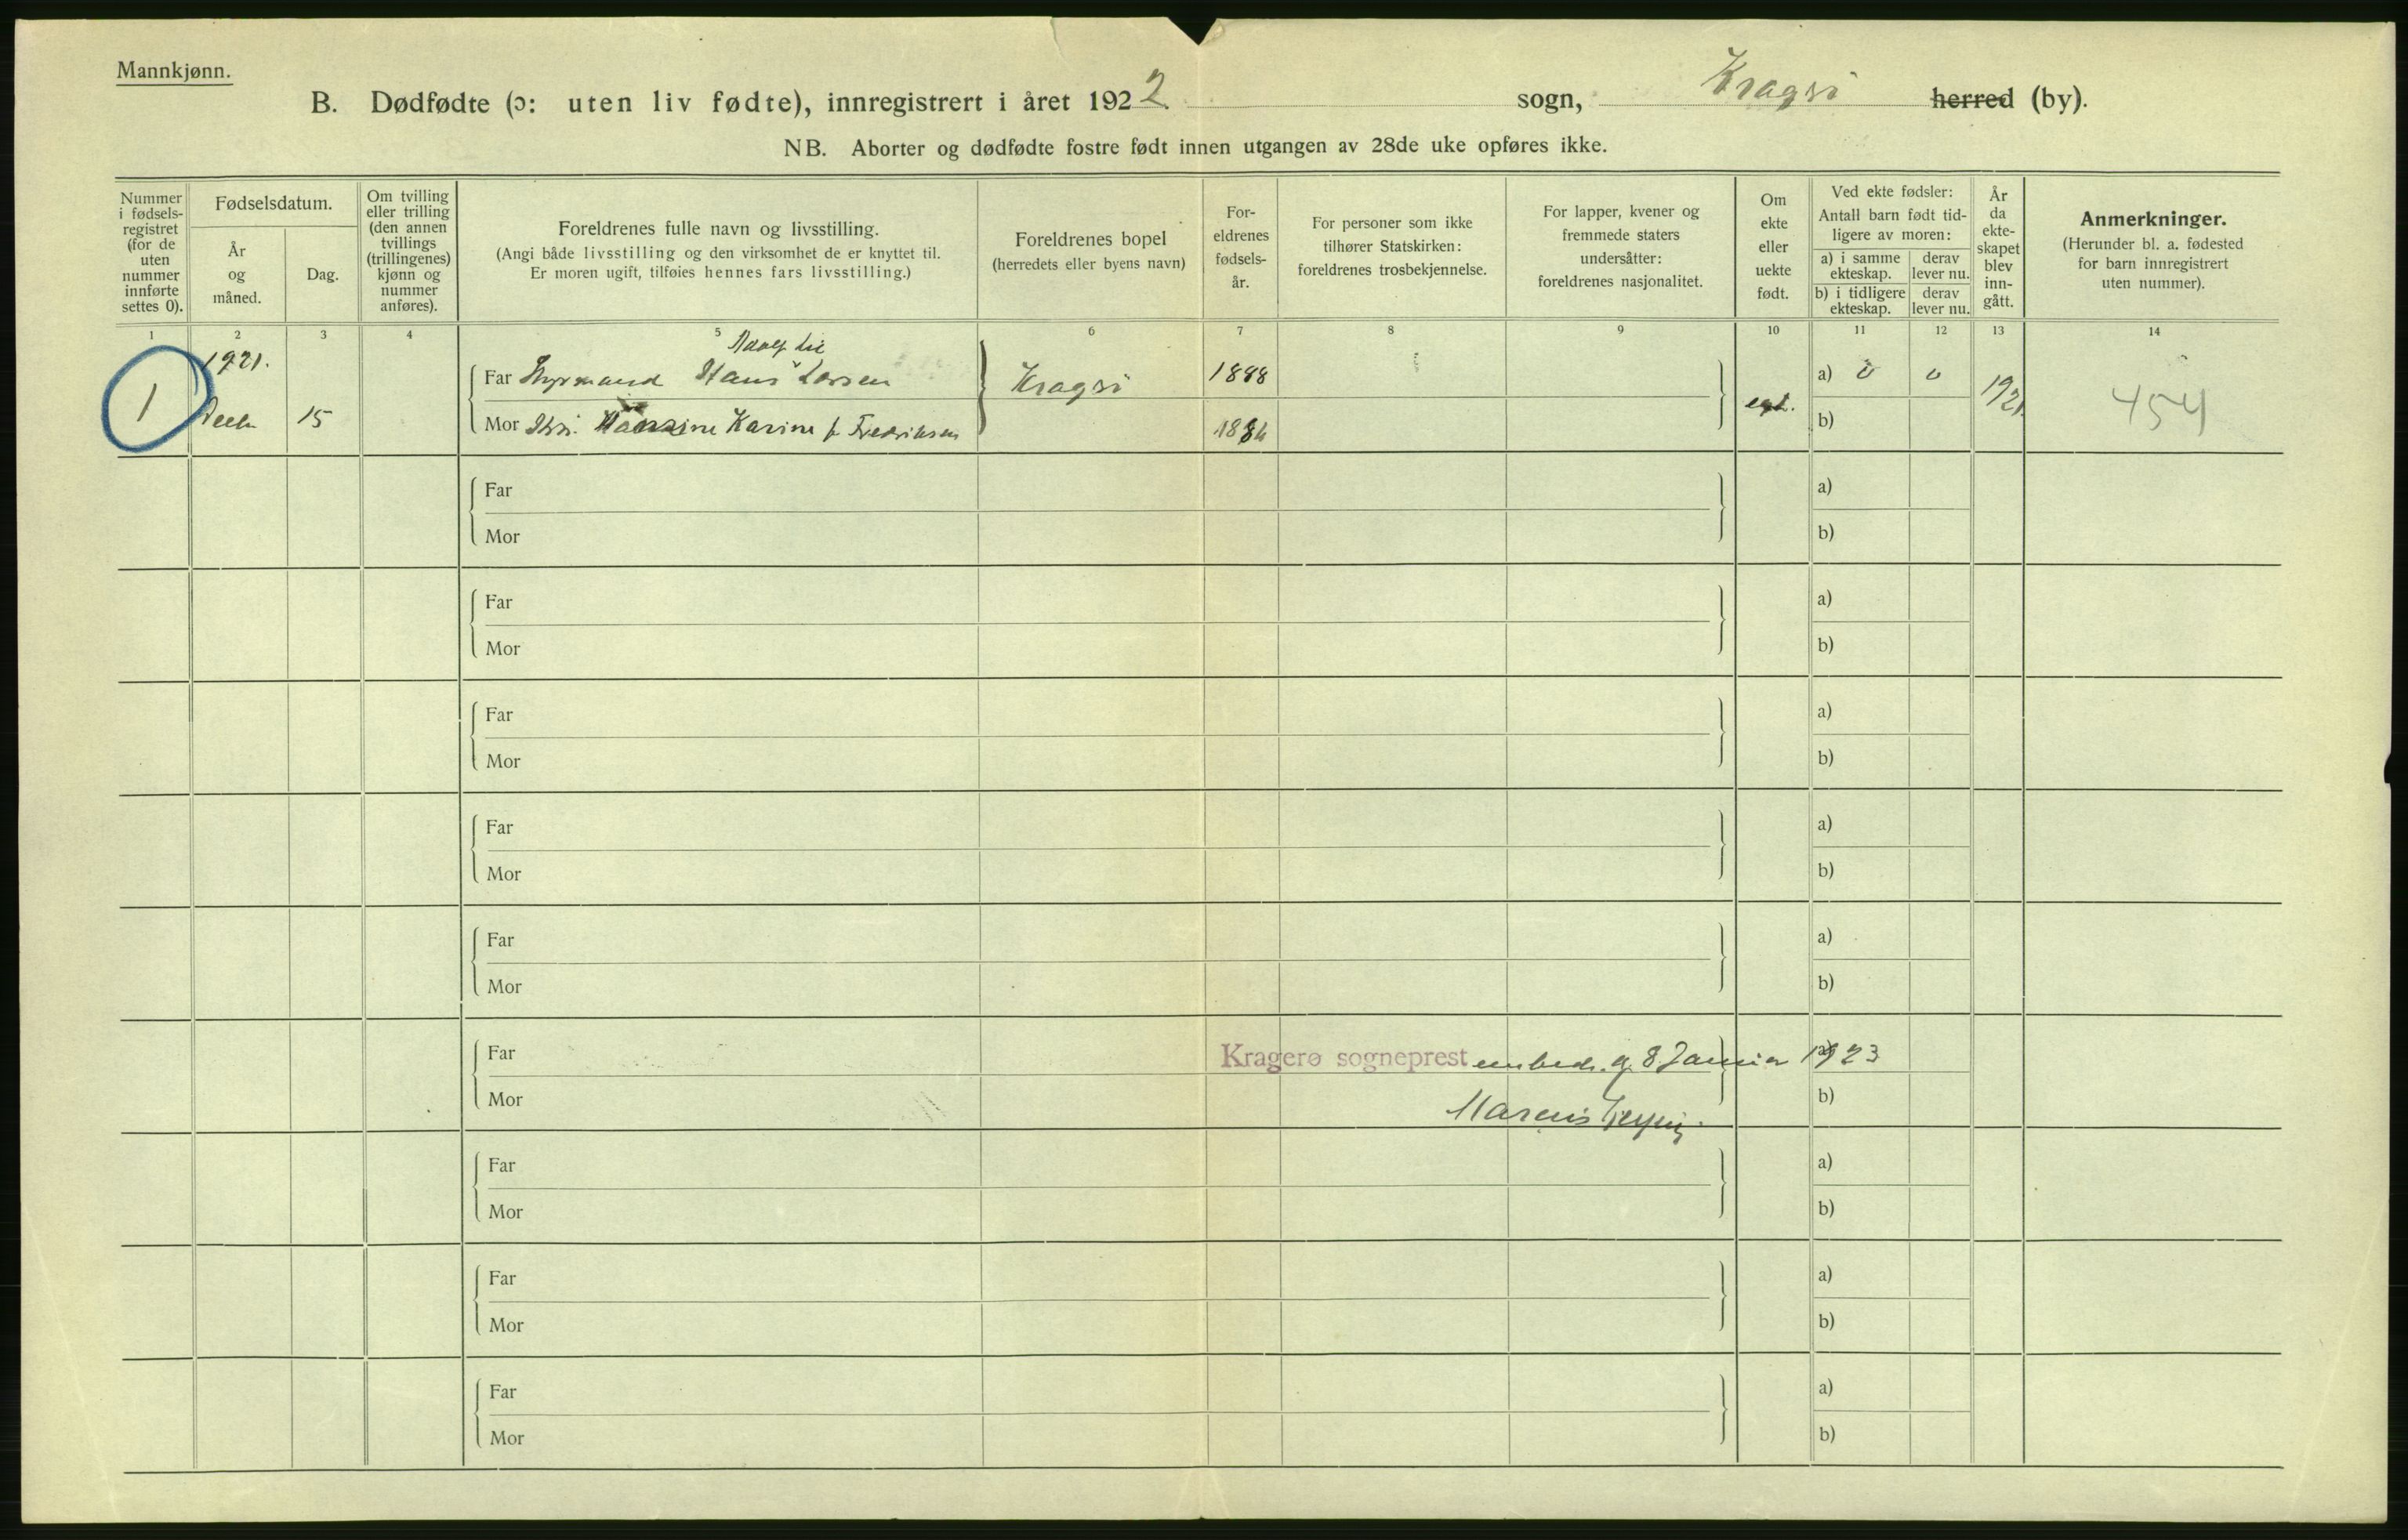 Mannkjønn.
B. Dødfødte (ɔ: uten liv fødte), innregistrert i året 1922 sogn, Kragø herred (by).
NB. Aborter og dødfødte fostre født innen utgangen av 28de uke opføres ikke.
Nummer i fødsels- registret (for de uten nummer innførte settes 0).
Fødselsdatum.
År og måned.
Dag.
Om tvilling eller trilling (den annen tvillings (trillingenes) kjønn og nummer anføres).
Foreldrenes fulle navn og livsstilling.
(Angi både livsstilling og den virksomhet de er knyttet til.
Er moren ugift, tilføies hennes fars livsstilling.)
Foreldrenes bopel
(herredets eller byens navn)
For- eldrenes fødsels- år.
For personer som ikke tilhører Statskirken: foreldrenes trosbekjennelse.
For lapper, kvener og fremmede staters undersåtter: foreldrenes nasjonalitet.
Om ekte eller uekte født.
Ved ekte fødsler:
Antall barn født tid- ligere av moren:
a) i samme ekteskap.
derav lever nu.
b) i tidligere ekteskap.
derav lever nu.
År da ekte- skapet blev inn- gått.
Anmerkninger.
(Herunder bl. a. fødested for barn innregistrert uten nummer).
1 2 3 4 5 6 7 8 9 10 11 12 13 14
1921.
Far Styrmand Hans Larsen Kragø 1888 a) 0 0 1921
1 Decb 15 Mor Hansine Karine f. Fredriksen 1886 egt. b) 454
Far a)
Mor b)
Far a)
Mor b)
Far a)
Mor b)
Far a)
Mor b)
Far a)
Mor b)
Far Kragerø sogneprest embed. 8 Januar 1923 a)
Mor Marcus b)
Far a)
Mor b)
Far a)
Mor b)
Far a)
Mor b)